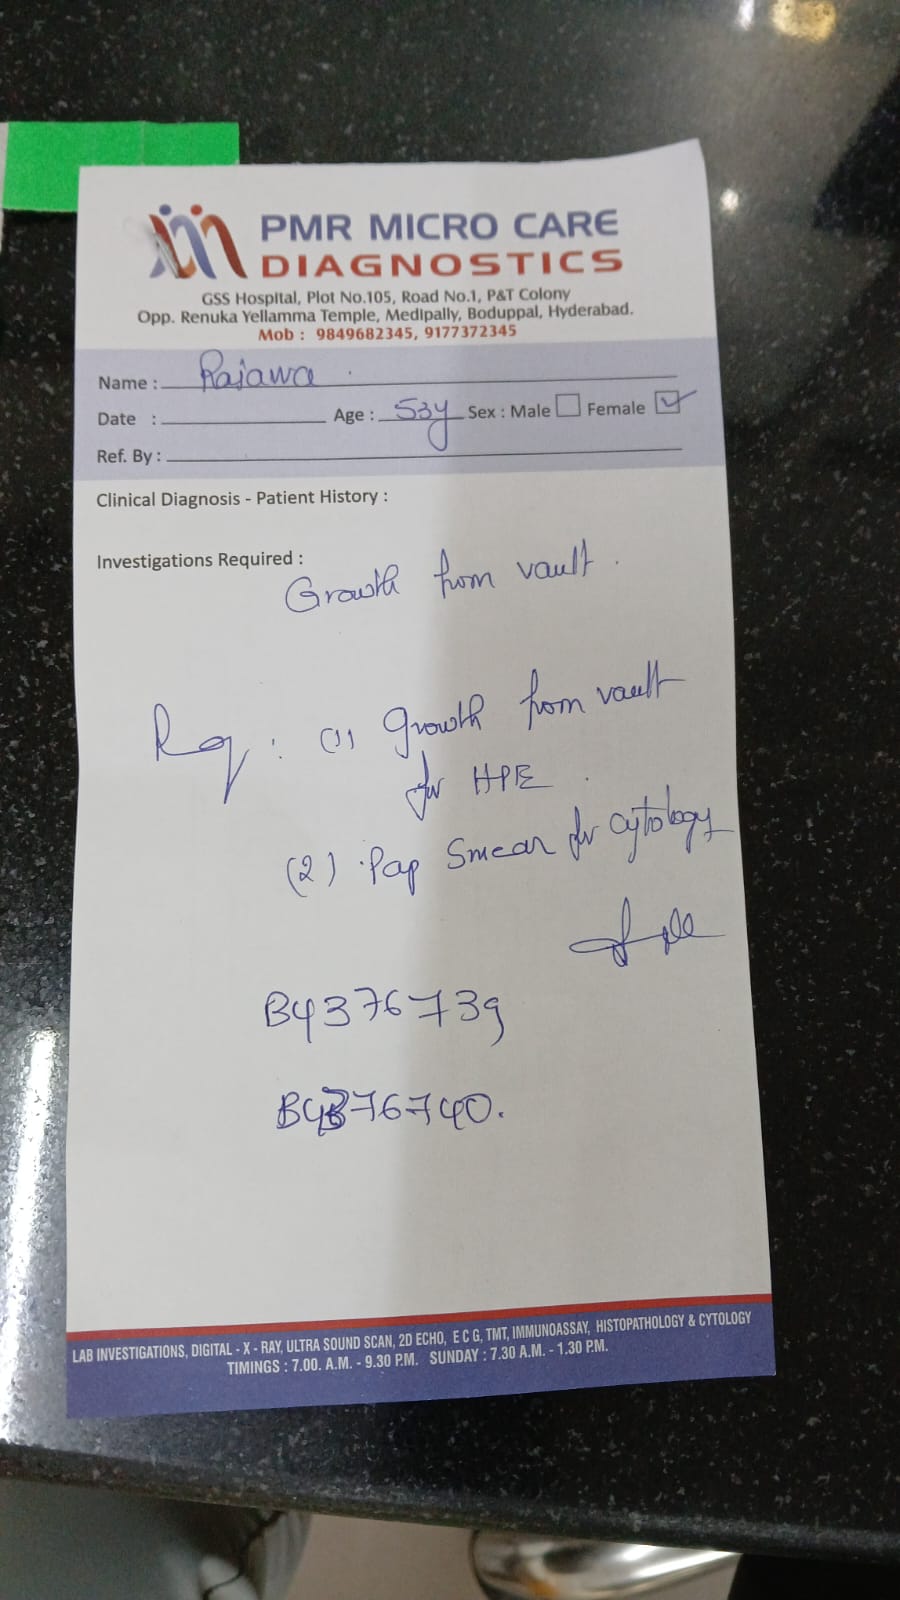 PMR MICRO CARE
DIAGNOSTICS
GSS Hospital, Plot No.105, Road No.1, P&T Colony
Opp. Renuka Yellamma Temple, Medipally, Boduppal, Hyderabad.
Mob : 9849682345, 9177372345
Name : Rajawa
Date : Age : 53y Sex : Male Female
Ref. By :
Clinical Diagnosis - Patient History :
Investigations Required :
Growth from vault.
Rq : (1) Growth from vault
for HPE.
(2) Pap Smear for Cytology
B4376739
B4376740.
LAB INVESTIGATIONS, DIGITAL - X - RAY, ULTRA SOUND SCAN, 2D ECHO, E C G, TMT, IMMUNOASSAY, HISTOPATHOLOGY & CYTOLOGY
TIMINGS : 7.00. A.M. - 9.30 P.M. SUNDAY : 7.30 A.M. - 1.30 P.M.